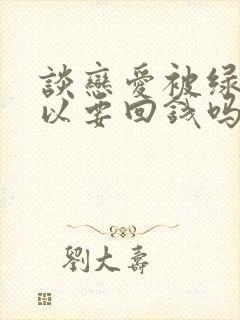 談戀愛被绿
以要回錢吗
劉大壽